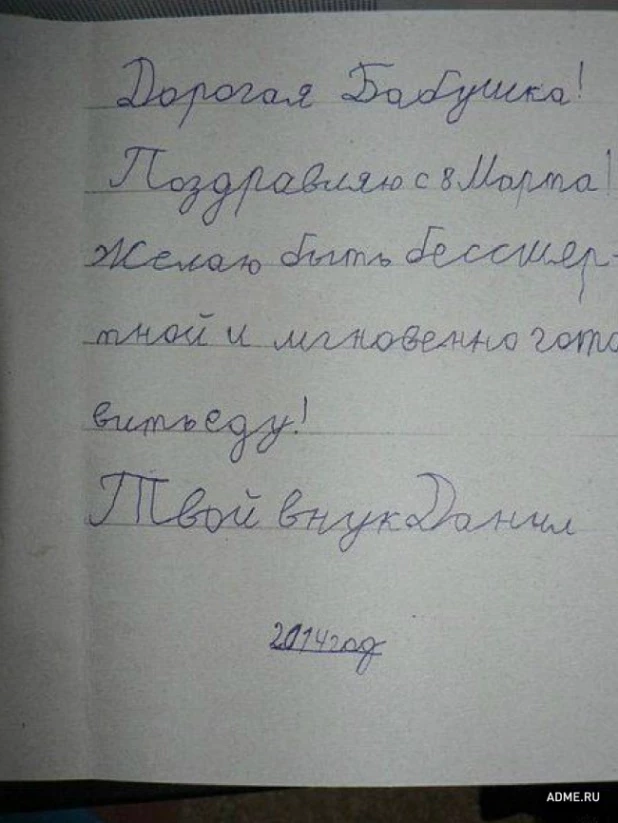 Дорогая Бабушка!
Поздравляю с 8 Марта!
Желаю быть бессмер-
тной и мгновенно гото
вить еду!
Твой внук Данил
2014 год
ADME.RU